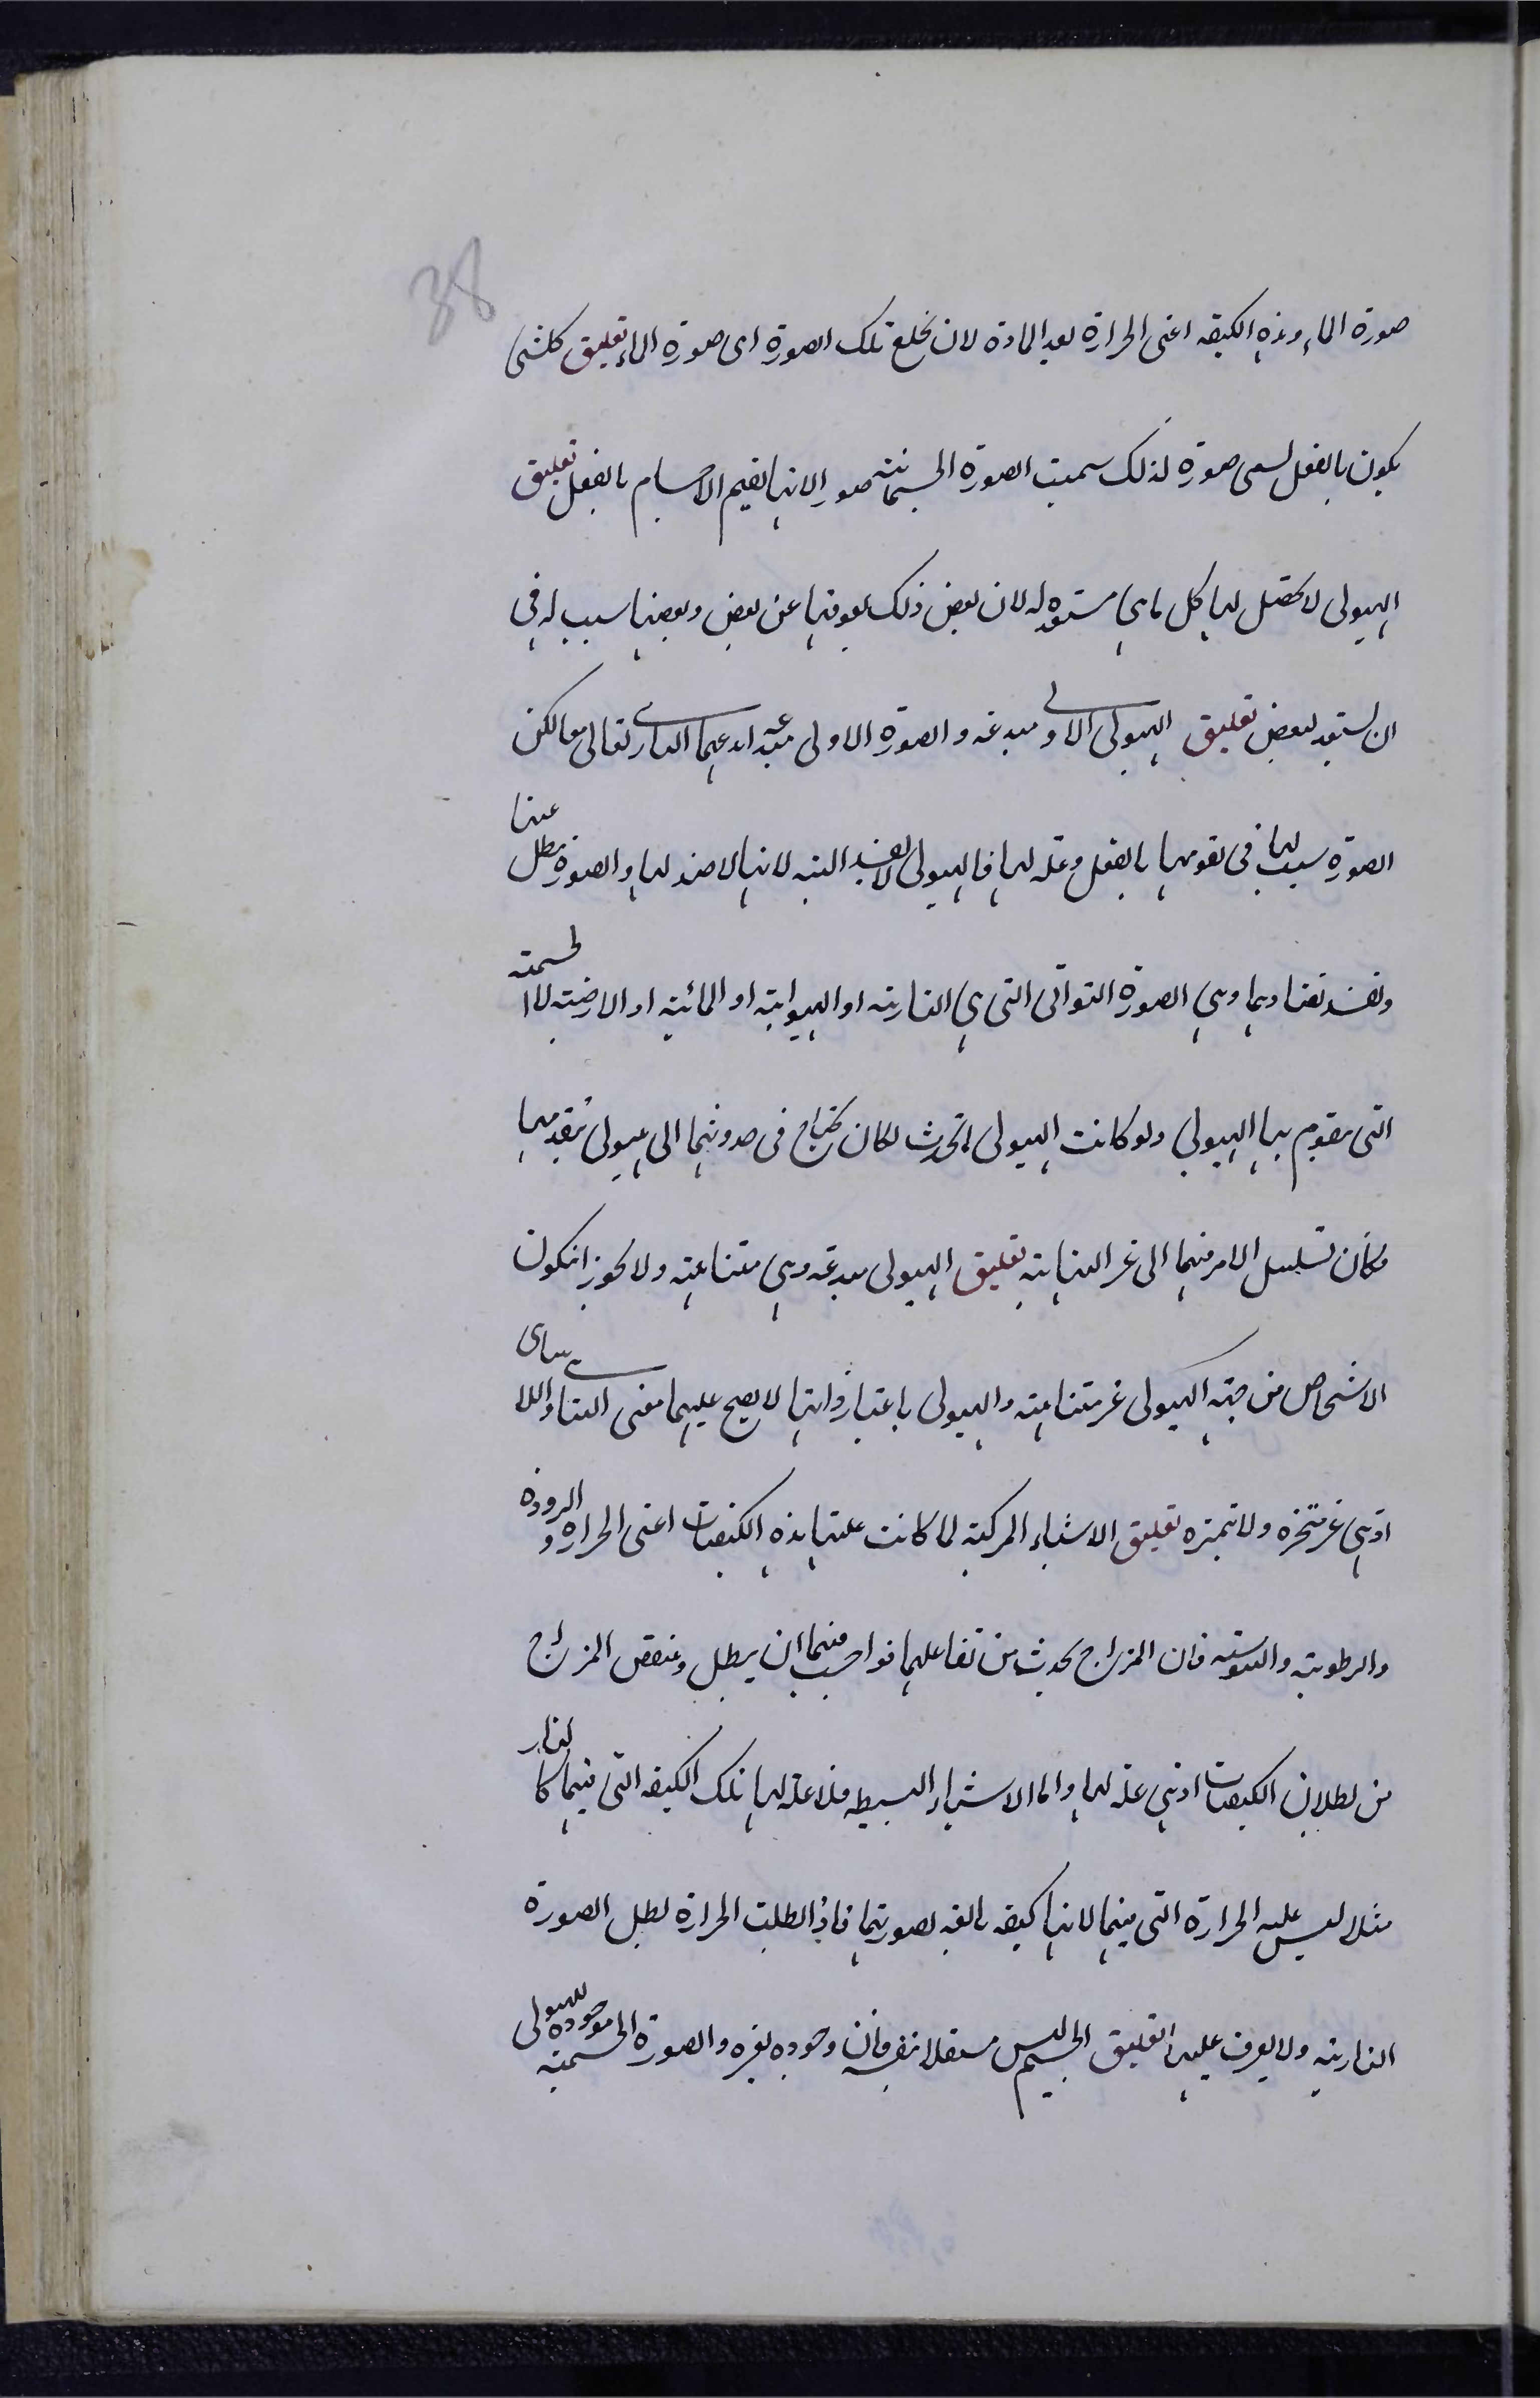 38
صورة الماء وهذه الكيفية اعنى الحرارة تعد المادة لان يخلع تلك الصورة اى صورة الماء تعليق كلشى
يكون بالفعل يسمى صورة لذلك سميت الصورة الجسمانية صورا لانها تقيم الاجسام بالفعل تعليق
الهيولى لا يحصل لها كل ما هى مستعدة له لان بعض ذلك يعوقها عن بعض وبعضها سبب له فى
ان يستعد لبعض تعليق الهيولى الاولى مبدعة والصورة الاولى مبدعة ابدعهما البارى تعالى معا لكن
الصورة سبب لها فى تقومها بالفعل وعلة لها فالهيولى لا تفسد البتة لانها لا ضد لها والصورة تبطل عنها
وتفسد بتضادهما وهى الصورة التوالى التى هى النارية او الهوائية او المائية او الارضية لا الجسمية
التى يتقوم بها الهيولى ولو كانت الهيولى تحدث لكان يحتاج فى حدوثها الى هيولى تتقدمها
فكان تسلسل الامر فيها الى غير النهاية تعليق الهيولى مبدعة وهى متناهية ولا يجوز ان يكون
الاشخاص من جهة الهيولى غير متناهية والهيولى باعتبار ذاتها لا يصح عليها معنى التناهى واللا تناهى
اذ هى غير متحيزة ولا متميزة تعليق الاشياء المركبة لما كانت علتها هذه الكيفيات اعنى الحرارة والبرودة
والرطوبة واليبوسة فان المزاج يحدث من تفاعلها فواجب فيها ان يبطل وينقص المزاج
من بطلان الكيفيات اذ هى علة لها واما الاشياء البسيطة فلا علة لها تلك الكيفية التى فيها كالنار
مثلا ليس علته الحرارة التى فيها لانها كيفية تابعة لصورتها فاذا بطلت الحرارة بطل الصورة
النارية ولا يعرف عليها تعليق الجسم ليس مستقلا بنفسه فان وجوده بغيره والصورة الجسمية موجودة للهيولى